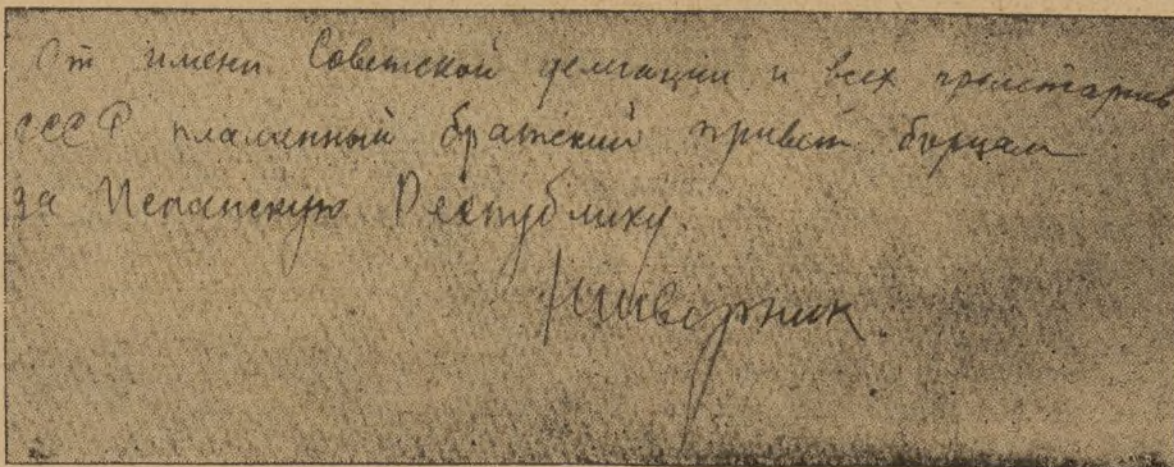 От имени Советской делегации и всех пролетариев
СССР пламенный братский привет борцам
за Испанскую Республику.
Н Шверник